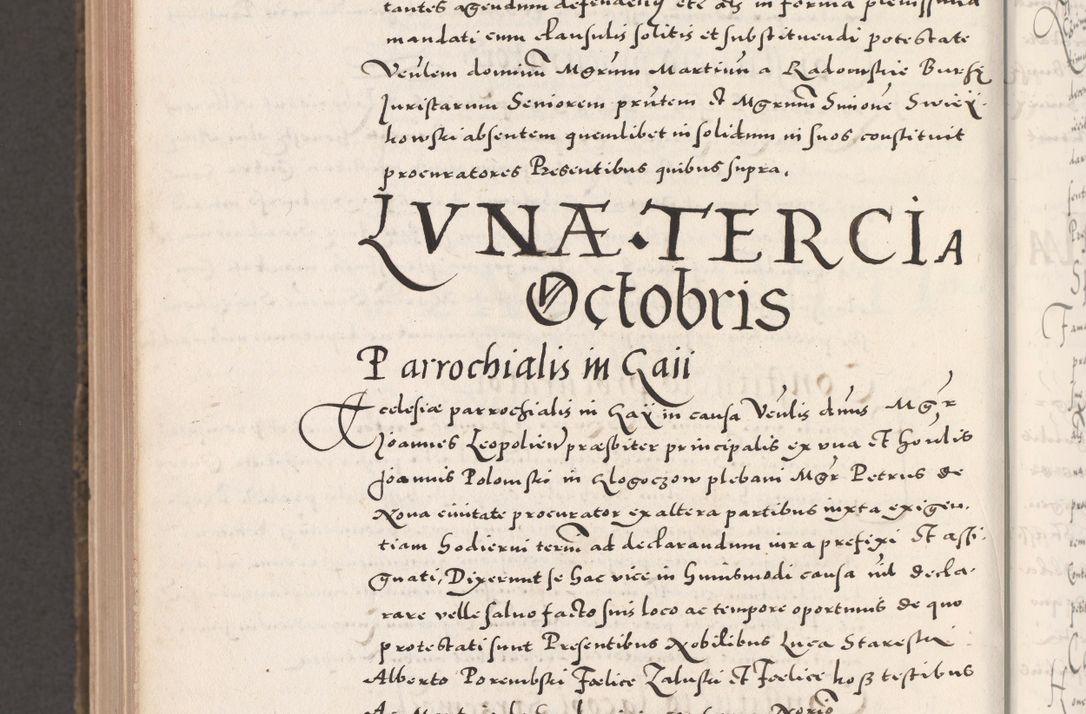 tantes agendum defendendum etc als in forma plenissima
mandati cum clausulis solitis et substituendi potestate
Venlem dominum Mgrum Martinum a Radomskie Bursę
Juristarum Seniorem prntem et Mgrum Simone Swięy-
howski absentem quemlibet in solidum in suos constituit
procuratores Presentibus quibus supra.
LVNÆ · TERCIA
Octobris
Parrochialis in Gaii
Ecclesiæ parrochialis in Gaÿ in causa Venlis dnus Mgr
Joannes Leopolien præsbiter principalis ex una et honlis
Joannis Polomski in Glogoczow plebani Mgr Petrus de
Nova civitate procurator ex altera partibus iuxta exigen-
tiam hodierni termi ad declarandum iura prefixi et assi-
gnati, Dixerunt se hac vice in huiusmodi causa nil decla-
rare velle salvo facto suis loco ac tempore oportunis de quo
protestati sunt Presentibus Nobilibus Luca Stareski
Alberto Porembski Fœlice Zaluski et Fœlice hosz testibus